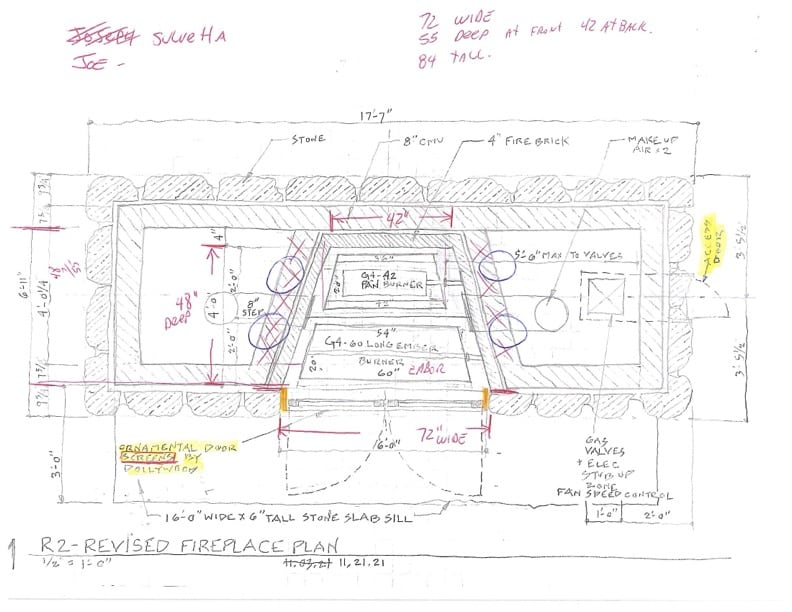 72 WIDE
55 DEEP AT FRONT 42 AT BACK.
84 TALL.
JOE -
17'-7"
STONE
8" CMU
4" FIRE BRICK
MAKE UP
AIR x 2
7 3/4
42"
4"
5'-6" MAX TO VALVES
ACCESS
DOOR
3'-5 1/2"
36"
G4-42
PAN BURNER
20"
42"
6'-11"
4'-0 1/4"
48"
DEEP
4'-0"
2'-0"
8"
STEP
2'-0"
54"
G4-60 LONG EMBER
BURNER
20"
60"
7 3/4
3'-5 1/2"
72" WIDE
6'-0"
ORNAMENTAL DOOR
SCREENS BY
DOLLYWOOD
GAS
VALVES
+ ELEC
STUB UP
ZONE
FAN SPEED CONTROL
3'-0"
1'-0"
2'-0"
16'-0" WIDE x 6" TALL STONE SLAB SILL
1 R2-REVISED FIREPLACE PLAN
1/2" = 1'-0"
11.03.21 11,21.21